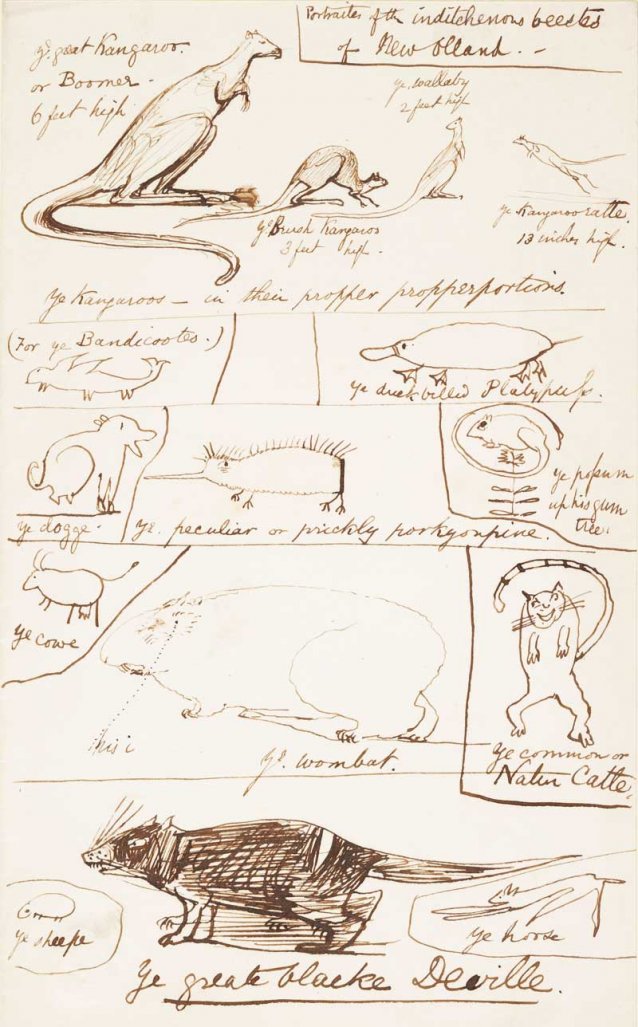 Portraites of the inditchenous beestes
of New Olland. -
ye great Kangaroo.
or Boomer.
6 feet high
ye wallaby
2 feet high
ye Kangaroo ratte.
13 inches high.
ye Brush Kangaroo
3 feet high.
Ye Kangaroos - in their propper propperportions.
(For ye Bandicootes.)
Ye duck billed Platypuss.
ye dogge.
Ye. peculiar or prickly porkyonpine.
ye possum
up his gum
tree.
ye cowe
this i
Ye. wombat.
Ye common or
Catte.
Ye sheepe
Ye horse
Ye greate blacke Deville.